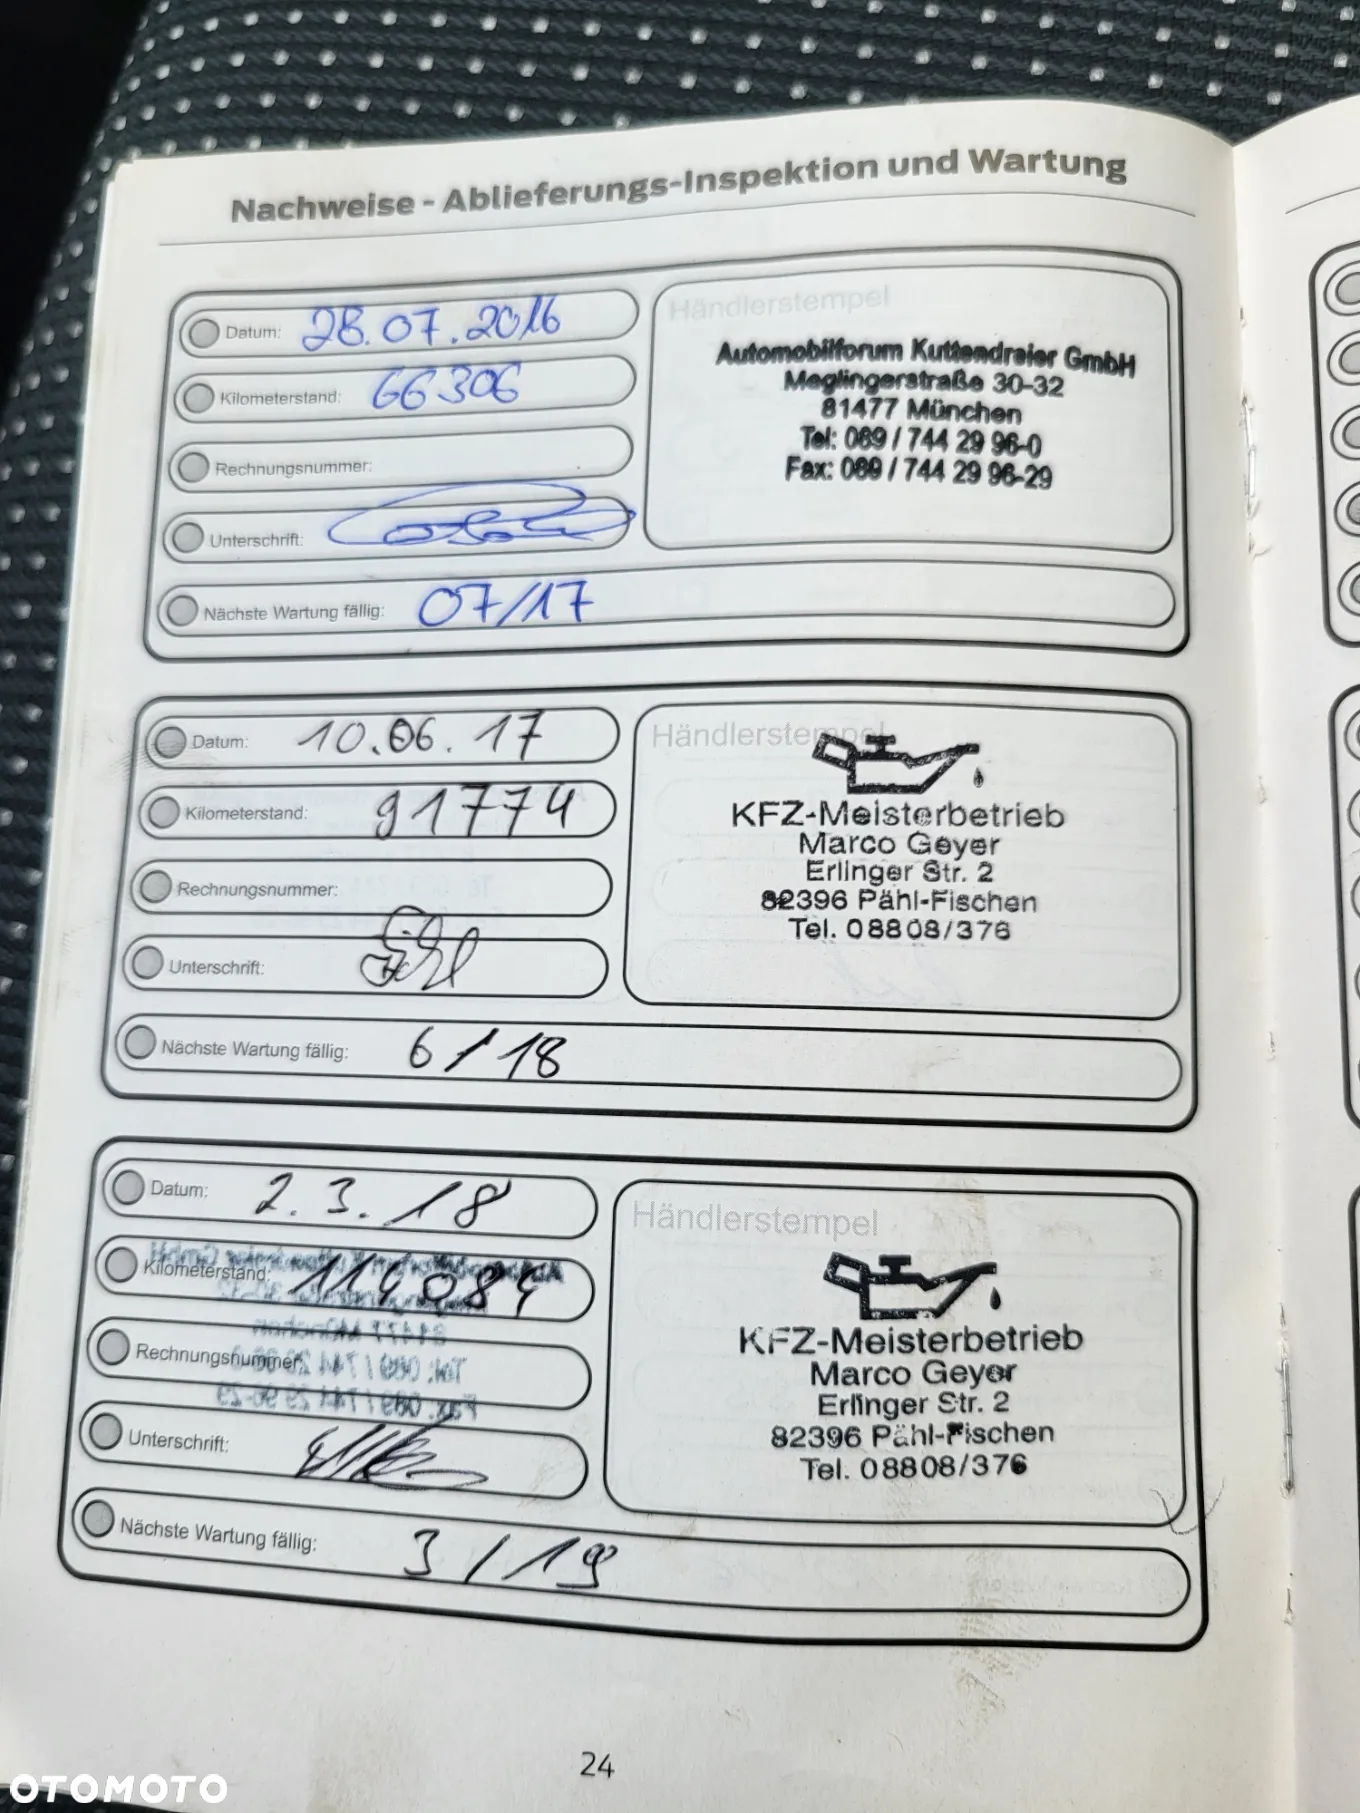 Nachweise - Ablieferungs-Inspektion und Wartung
Datum: 28.07.2016
Kilometerstand: 66306
Rechnungsnummer:
Unterschrift:
Nächste Wartung fällig: 07/17
Händlerstempel
Automobilforum Kuttendreier GmbH
Meglingerstraße 30-32
81477 München
Tel: 089 / 744 29 96-0
Fax: 089 / 744 29 96-29
Datum: 10.06.17
Kilometerstand: 91774
Rechnungsnummer:
Unterschrift:
Nächste Wartung fällig: 6/18
Händlerstempel
KFZ-Meisterbetrieb
Marco Geyer
Erlinger Str. 2
82396 Pähl-Fischen
Tel. 08808/376
Datum: 2.3.18
Kilometerstand: 114084
Rechnungsnummer:
Unterschrift:
Nächste Wartung fällig: 3/19
Händlerstempel
KFZ-Meisterbetrieb
Marco Geyer
Erlinger Str. 2
82396 Pähl-Fischen
Tel. 08808/376
24
OTOMOTO